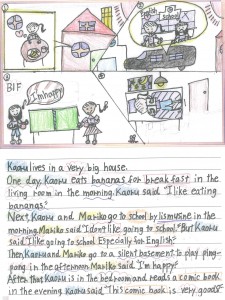 ①
②
school
③
B1F
I'm happy
④
Kaoru lives in a very big house.
One day, Kaoru eats bananas for breakfast in the
living room in the morning. Kaoru said "I like eating
bananas."
Next, Kaoru and Mariko go to school by lismusine in the
morning. Mariko said "I don't like going to school." But Kaoru
said, "I like going to school. Especially for English!"
Then, Kaoru and Mariko go to a silent basement to play ping-
pong in the afternoon. Mariko said "I'm happy."
After that, Kaoru is in the bedroom and reads a comic book
in the evening. Kaoru said "This comic book is very good!"